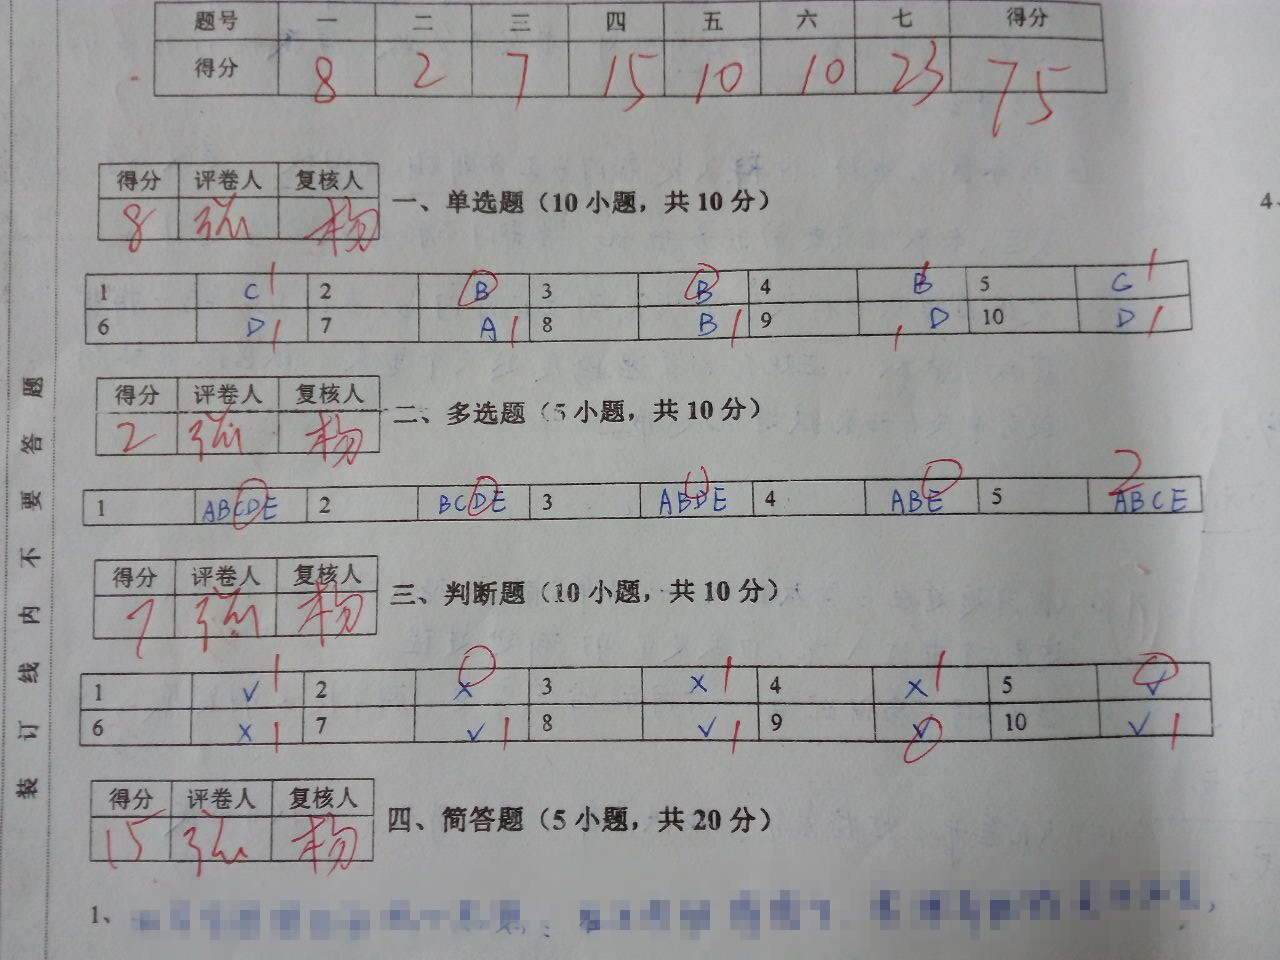 题号 一 二 三 四 五 六 七 得分
得分 8 2 7 15 10 10 23 75
得分 评卷人 复核人
8 张 杨
一、单选题（10 小题，共 10 分）
1 C 1 2 B 3 B 4 B 1 5 C 1
6 D 1 7 A 1 8 B 1 9 1 D 10 D 1
得分 评卷人 复核人
2 张 杨
二、多选题（5 小题，共 10 分）
1 ABCDE 2 BCDE 3 ABDE 4 ABE 5 ABCE 2
得分 评卷人 复核人
7 张 杨
三、判断题（10 小题，共 10 分）
1 ✓ 1 2 × 3 × 1 4 × 1 5 ✓
6 × 1 7 ✓ 1 8 ✓ 1 9 ✓ 10 ✓ 1
得分 评卷人 复核人
15 张 杨
四、简答题（5 小题，共 20 分）
1、
装订线内不要答题
4、